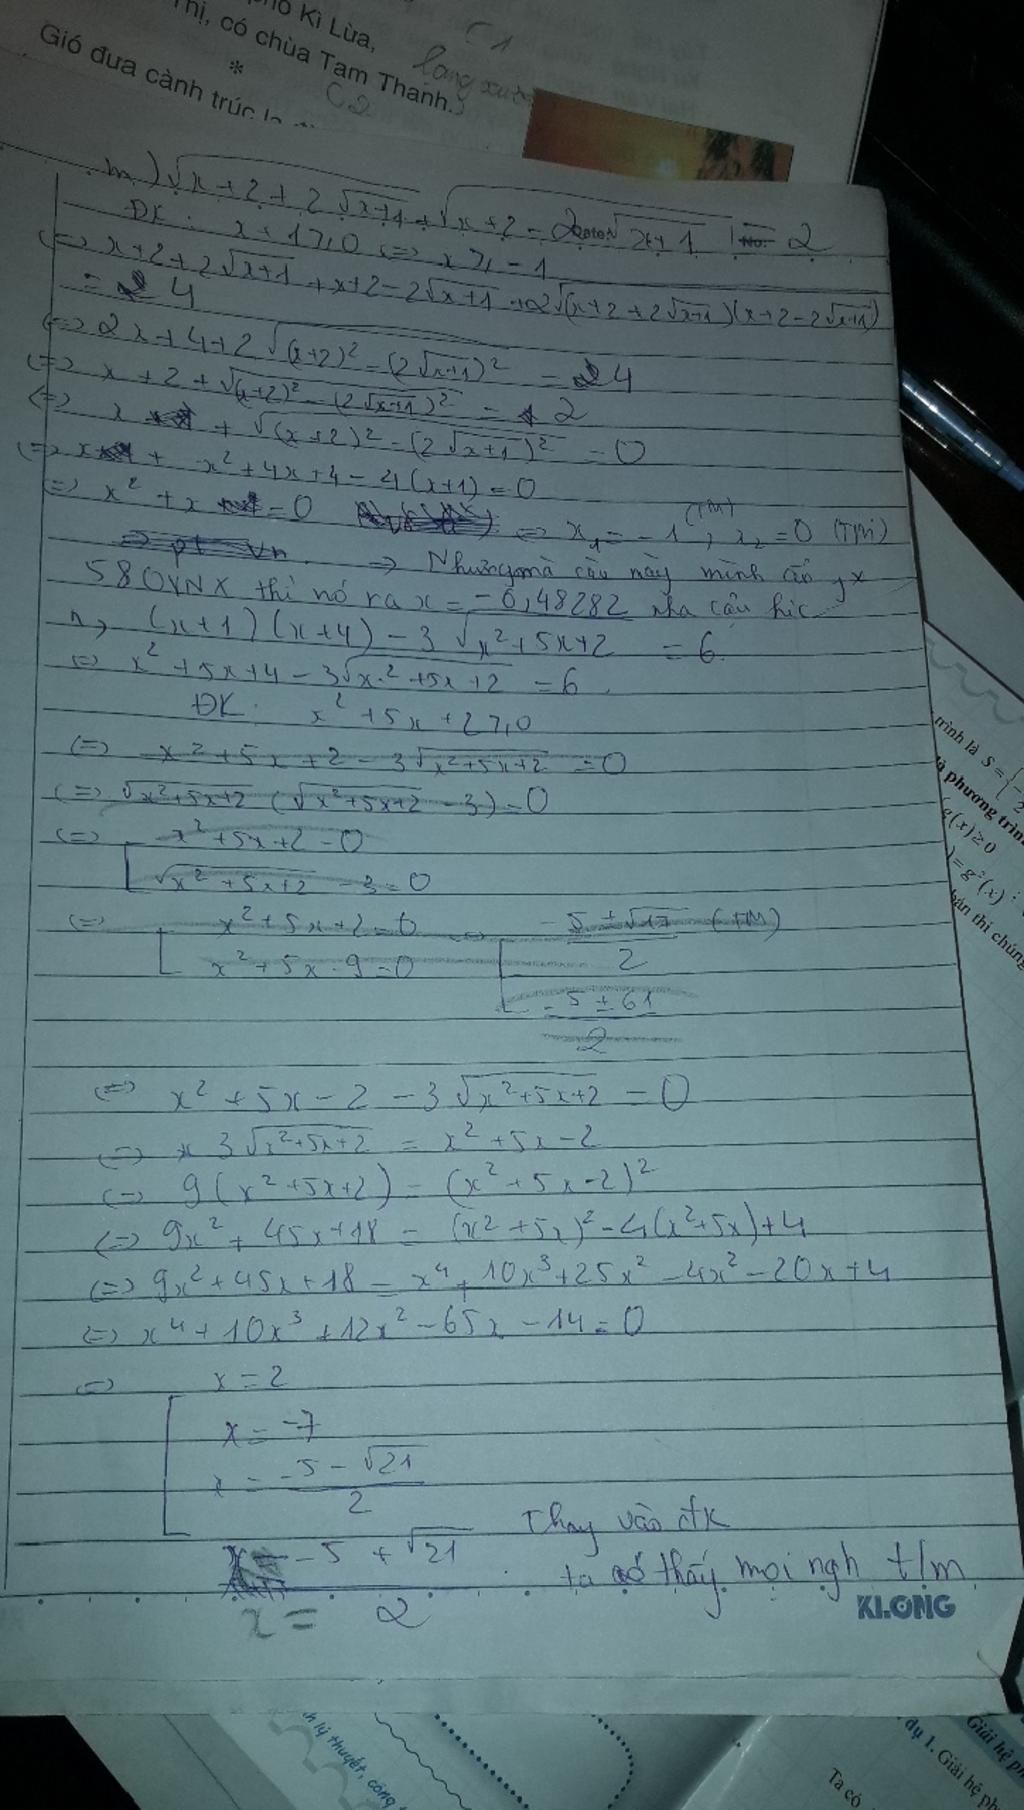 phố Kì Lừa,
Thị, có chùa Tam Thanh.
*
Gió đưa cành trúc la
C1
C2
m) √(x+2+2√(x+1)) + √(x+2-2√(x+1)) = 2
No.
ĐK: x+1 ≥ 0 <=> x ≥ -1
<=> x+2+2√(x+1) + x+2-2√(x+1) + 2√((x+2+2√(x+1))(x+2-2√(x+1)))
= 4
<=> 2x+4+2√((x+2)²-(2√(x+1))²) = 4
<=> x+2+√((x+2)²-(2√(x+1))²) = 2
<=> x + √((x+2)²-(2√(x+1))²) = 0
<=> x + x²+4x+4-4(x+1) = 0
<=> x²+x = 0 <=> x₁ = -1 (TM), x₂ = 0 (TM)
=> pt vn. => Nhưng mà câu này mình có fx
580VNX thì nó ra x = -0,48282 nha cậu hic
n, (x+1)(x+4) - 3√(x²+5x+2) = 6
<=> x²+5x+4-3√(x²+5x+2) = 6
ĐK: x²+5x+2 ≥ 0
<=> x²+5x+2-3√(x²+5x+2) = 0
<=> √(x²+5x+2) (√(x²+5x+2) - 3) = 0
<=> x²+5x+2 = 0
√(x²+5x+2) - 3 = 0
<=> x²+5x+2 = 0 <=> (-5±√17)/2 (TM)
x²+5x-9 = 0 (-5±61)/2
<=> x²+5x-2-3√(x²+5x+2) = 0
<=> 3√(x²+5x+2) = x²+5x-2
<=> 9(x²+5x+2) = (x²+5x-2)²
<=> 9x²+45x+18 = (x²+5x)²-4(x²+5x)+4
<=> 9x²+45x+18 = x⁴+10x³+25x²-4x²-20x+4
<=> x⁴+10x³+12x²-65x-14 = 0
<=> x = 2
x = -7
x = (-5-√21)/2
x = (-5+√21)/2
Thay vào đk
ta thấy mọi ngh t/m
KLONG
trình là S = {
phương trìn
g(x) ≥ 0
) = g²(x)
thí chúng
h lý thuyết, công
dụ 1. Giải hệ ph
Giải hệ ph
Ta có